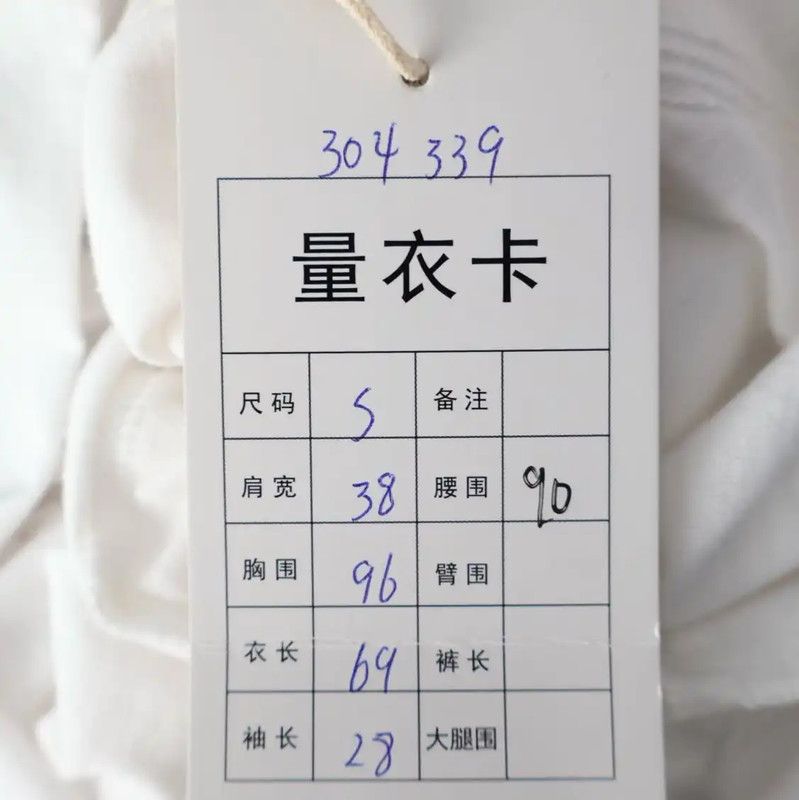 304 339
量衣卡
尺码 S 备注
肩宽 38 腰围 90
胸围 96 臂围
衣长 69 裤长
袖长 28 大腿围